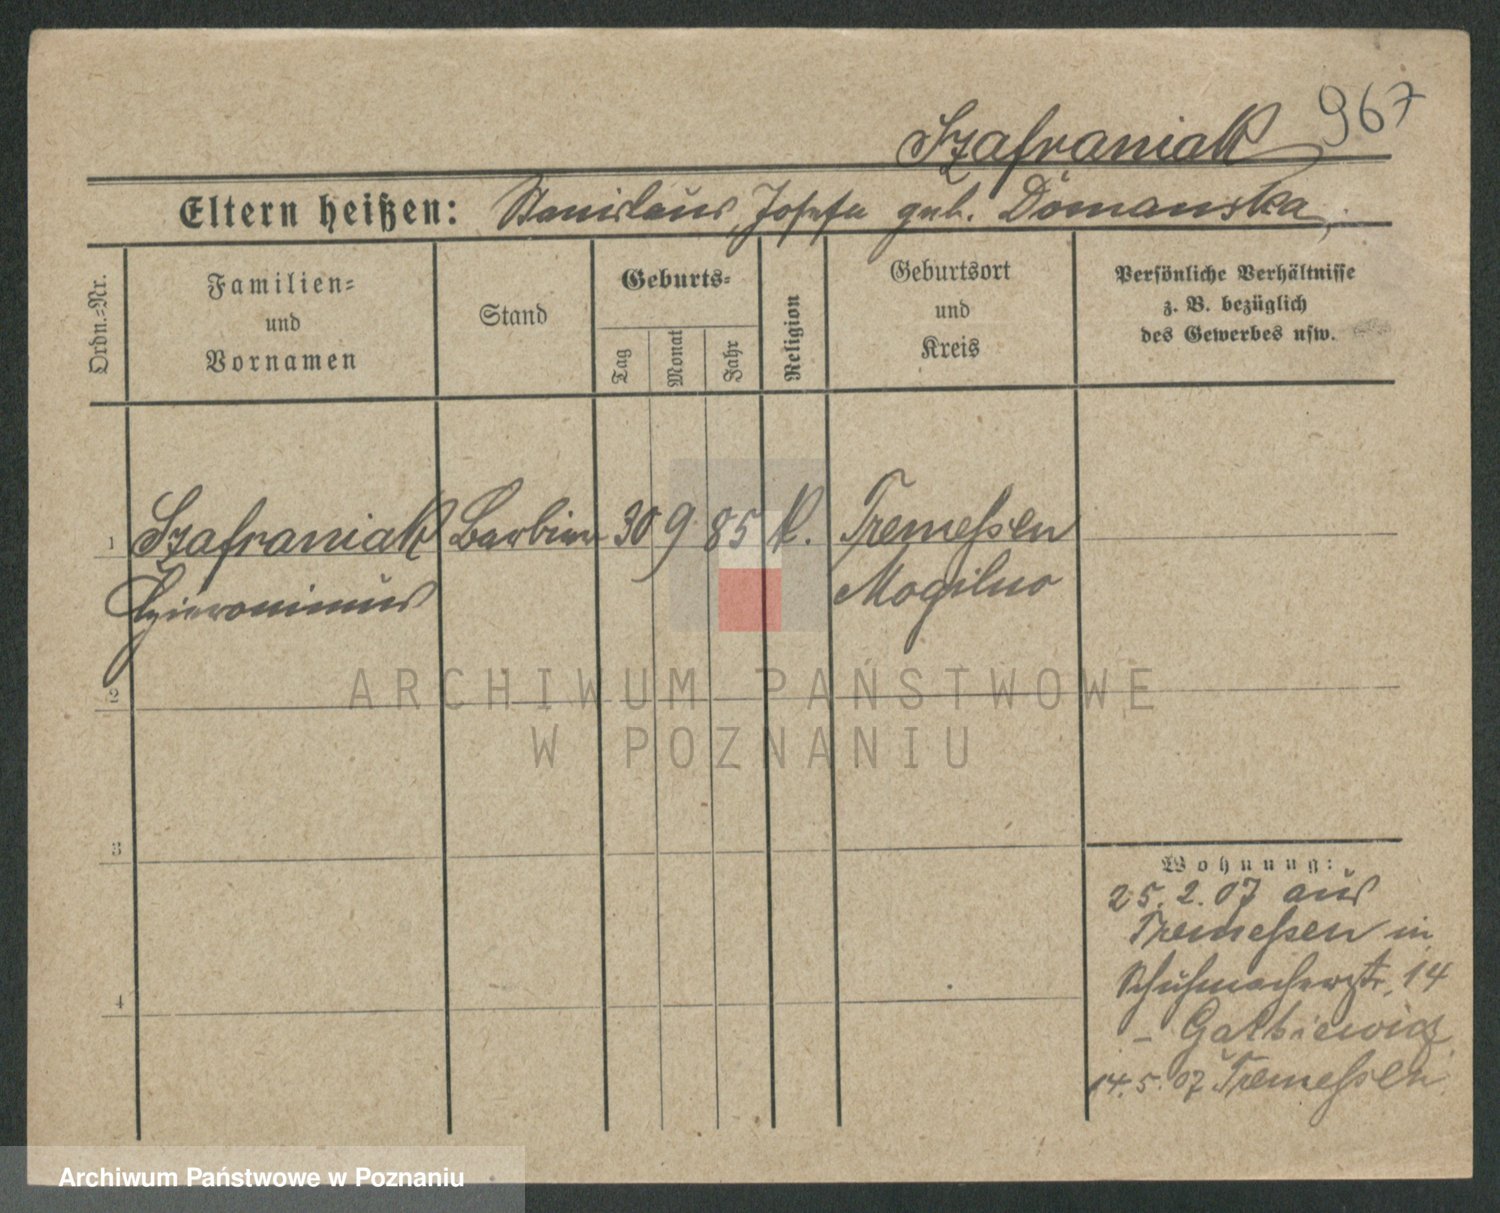 967
Szafraniak
Eltern heißen: Stanislaus, Josefa geb. Domanska
Ordn.-Nr.
Familien-
und
Vornamen
Stand
Geburts-
Tag
Monat
Jahr
Religion
Geburtsort
und
Kreis
Persönliche Verhältnisse
z. B. bezüglich
des Gewerbes usw.
1 Szafraniak Barbier 30 9 85 k. Tremessen
Hieronimus Mogilno
2
3
4
Wohnung:
25.2.07 aus
Tremessen in
Schuhmacherstr. 14
14.5.07 Tremessen
ARCHIWUM PAŃSTWOWE
W POZNANIU
Archiwum Państwowe w Poznaniu